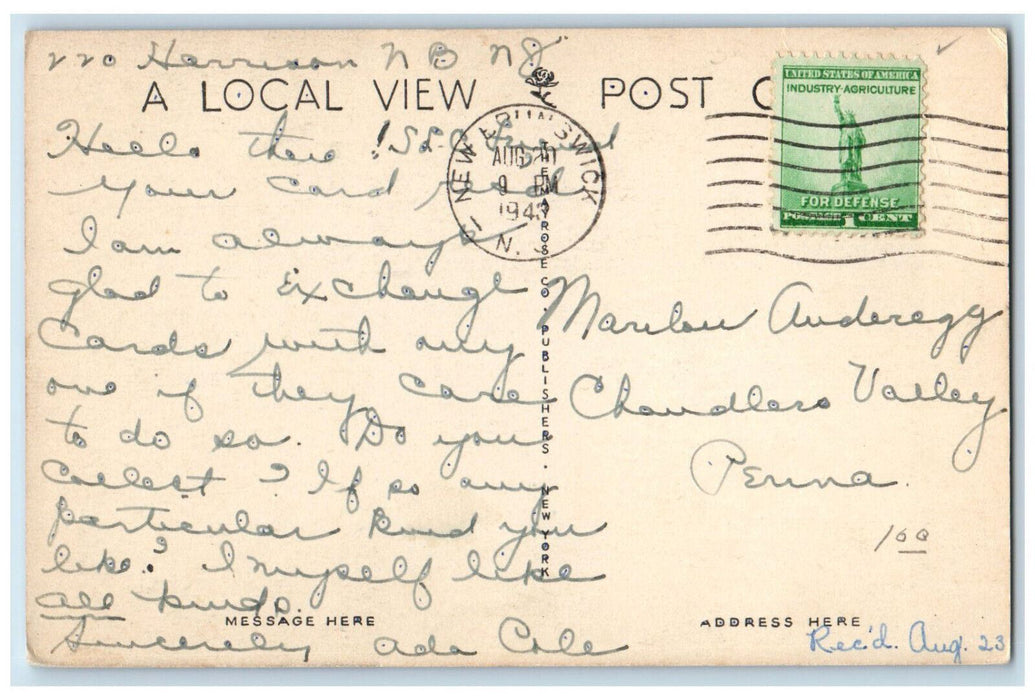 220 Harrison NB NJ
A LOCAL VIEW POST C
Hello there! S.S.C. Friend
Your card recd
I am always
glad to Exchange
Cards with any
one if they care
to do so. Do you
collect? If so any
particular kind you
like? I myself like
all kinds.
MESSAGE HERE
Sincerely Ada Cole
NEW BRUNSWICK
AUG 20
9 PM
1943
N. J.
TENAYROSE CO. PUBLISHERS. NEW YORK
UNITED STATES OF AMERICA
INDUSTRY-AGRICULTURE
FOR DEFENSE
POSTAGE 1 CENT
Marilou Anderegg
Chandlers Valley
Penna.
100
ADDRESS HERE
Rec'd. Aug. 23